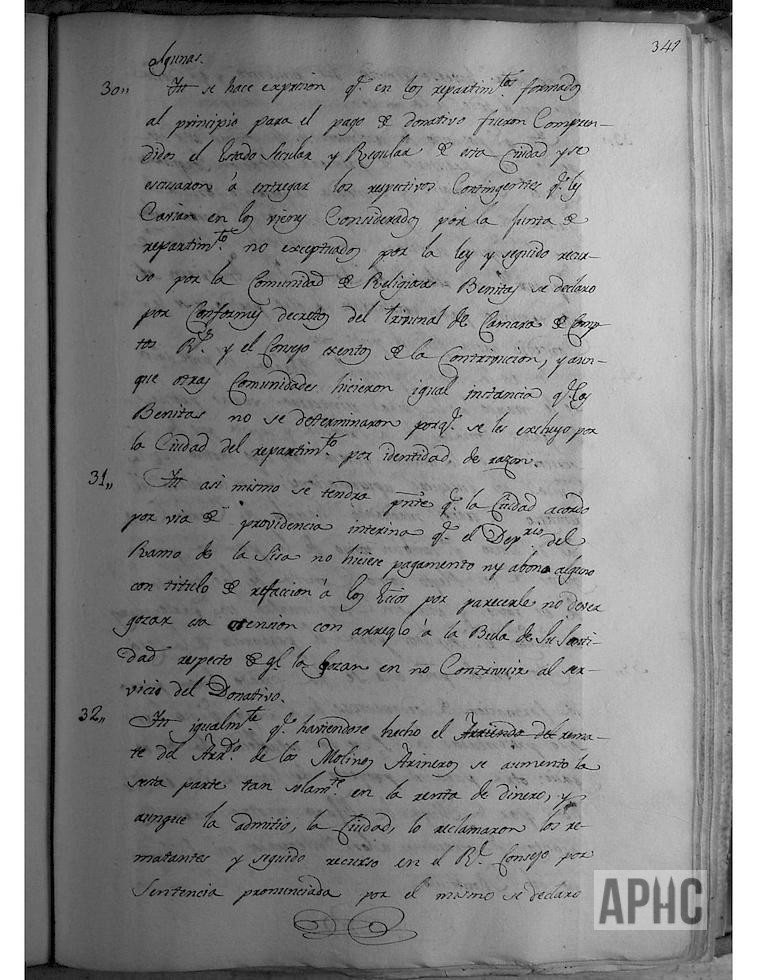 341
algunas.
30,, Itt se hace exprsion qe. en los repartimtos. formados
al principio para el pago de donativo fueron Compren-
didos el Estado Secular y Regular de esta Ciudad y se
escusaron á entregar los respectivos Contingentes qe. les
Cavian en los vienes Considerados por la Junta de
repartimto. no exceptuados por la ley y seguido recur-
so por la Comunidad de Religiosas Benitas se declaro
por Conformes decretos del trivunal de Camara de Comp-
tos Rs. y el Consejo exentos de la Contrivucion, y aun-
que otras Comunidades hicieron igual instancia qe. las
Benitas no se determinaron porqe. se les excluyo por
la Ciudad del repartimto. por identidad de razon.
31,, Itt asi mismo se tendra pnte qe. la Ciudad acordo
por via de providencia interina qe. el Deprio. del
Ramo de la Sisa no hiciese pagamento ny abono alguno
con titulo de refaccion á los Eccos por parecerle no dever
gozar esa esension con arreglo á la Bula de Su Santi-
dad respecto de qe. la gozan en no Contrivuir al ser-
vicio del Donativo.
32,, Itt igualmte. qe. haviendose hecho el Arriendo del rema-
te del Arrdo. de los Molinos Arineros se aumento la
sesta parte tan solamte. en la renta de dinero, y
aunque la admitio, la Ciudad, lo reclamaron los re-
matantes y seguido recurso en el Rl. Consejo por
Sentencia pronunciada por el mismo se declaro
APHC